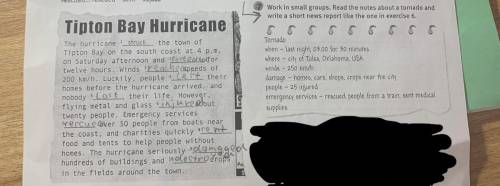 Tipton Bay Hurricane
The hurricane ¹ struck the town of
Tipton Bay on the south coast at 4 p.m.
on Saturday afternoon and ² for
twelve hours. Winds ³ reached speeds of
200 km/h. Luckily, people ⁴ left their
homes before the hurricane arrived, and
nobody ⁵ lost their life. However,
flying metal and glass ⁶ injured about
twenty people. Emergency services
⁷ rescued over 50 people from boats near
the coast, and charities quickly ⁸ sent
food and tents to help people without
homes. The hurricane seriously ⁹ damaged
hundreds of buildings and ¹⁰ crops
in the fields around the town.
Work in small groups. Read the notes about a tornado and
write a short news report like the one in exercise 6.
Tornado
when – last night, 09.00 for 90 minutes
where – city of Tulsa, Oklahoma, USA
winds – 250 km/h
damage – homes, cars, shops, crops near the city
people – 25 injured
emergency services – rescued people from a train, sent medical
supplies